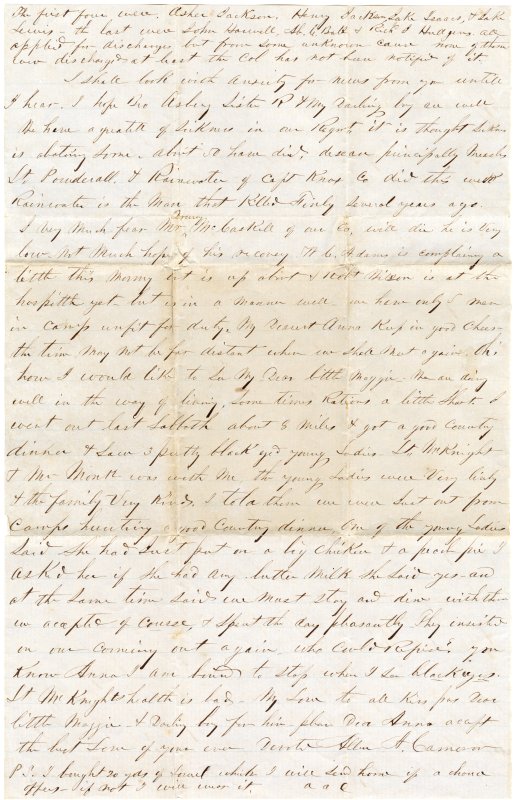 The first four were, Asher Jackson, Henry Jackson, Jake Isaacs, & Jake
Lewis - the last were John Howell, Wm. G. Ball & Rich J Hudgins. all
applied for discharges but from some unknown cause none of them
ever discharged - at least the Col has not been notified of it.
I shall look with anxiety for news from you untill
I hear. I hope Bro Asbery Sister R & My Darling boy are well
We have a great deal of Sickness in our Regmt, it is thought Sickness
is abating Some. about 50 have died, disease principally Measles
Lt. Powderall & Rainwater of Capt Knox Co died this week
Rainwater is the Man that Killed Finly Several years ago.
I very Much fear Mr. McCaskill of our Co. will die he is very
low. Not Much hope of his recovery. H. C. Adams is complaining a
little this Morning but is up about & Robt Nixon is at the
hospittle yet but is in a manner well we have only 5 men
in camp unfit for duty. My Dearest Anna Keep in good Cheer
the time May not be far distant when we Shall Meet again. Oh
how I would like to See My Dear little Maggie - We are doing
well in the way of living, Some times Rations a little Short. I
went out last Sabbath about 8 miles & got a good Country
dinner & Saw 3 pretty black eyed young Ladies - Lt McKnight
& Mr Monk was with Me the young Ladies were Very lively
& the family Very Kind. I told them we were Just out from
Camps hunting a good Country dinner, One of the young Ladies
Said She had Just put on a big Chicken & a peach pie I
asked her if She had any butter Milk She Said yes - and
at the Same time Said we Must Stay and dine with them
we accepted of Course, & Spent the day pleasantly They insisted
on our comming out again, who Could Refuse, you
Know Anna I am bound to Stop when I See black eyes.
Lt McKnights health is bad - My Love to all Kiss Dear
little Maggie & Darling boy for him please Dear Anna accept
the best Love of your ever Devoted Allen A. Cameron
P.S. I bought 20 yds of Towel which I will Send home if a chance
offers - if not I will wear it. a a C